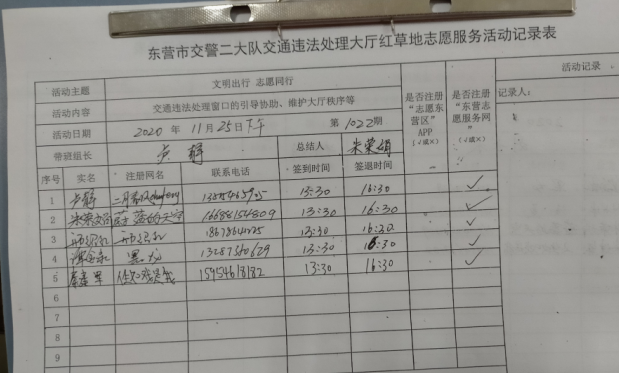 东营市交警二大队交通违法处理大厅红草地志愿服务活动记录表
活动主题 文明出行 志愿同行
活动内容 交通违法处理窗口的引导协助、维护大厅秩序等
活动日期 2020 年 11月25日下午 第1022期
带班组长 卢静 总结人 朱荣娟
是否注册“志愿东营区”APP（√或×）
是否注册“东营志愿服务网”（√或×）
活动记录
记录人：
序号 实名 注册网名 联系电话 签到时间 签退时间
1 卢静 13:30 16:30 ✓
2 16688154809 13:30 16:30 ✓
3 13:30 16:30 ✓
4 13287560629 13:30 16:30 ✓
5 15954618182 13:30 16:30 ✓
6
7
8
9